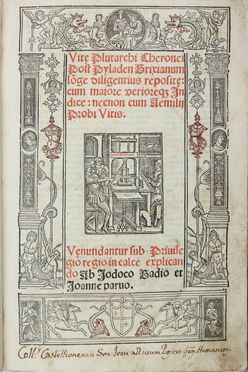 Vite Plutarchi Cheronei
Post Pyladen Brixianum
lõge diligentius reposite:
cum maiore verioreqz In
dice: necnon cum Aemilij
Probi Vitis.
Venundantur sub Priuile
gio regio in calce explican
do Ab Jodoco Badio et
Joanne paruo.
Coll.ⁱ Castellionensis Soc. Jesu ad usum